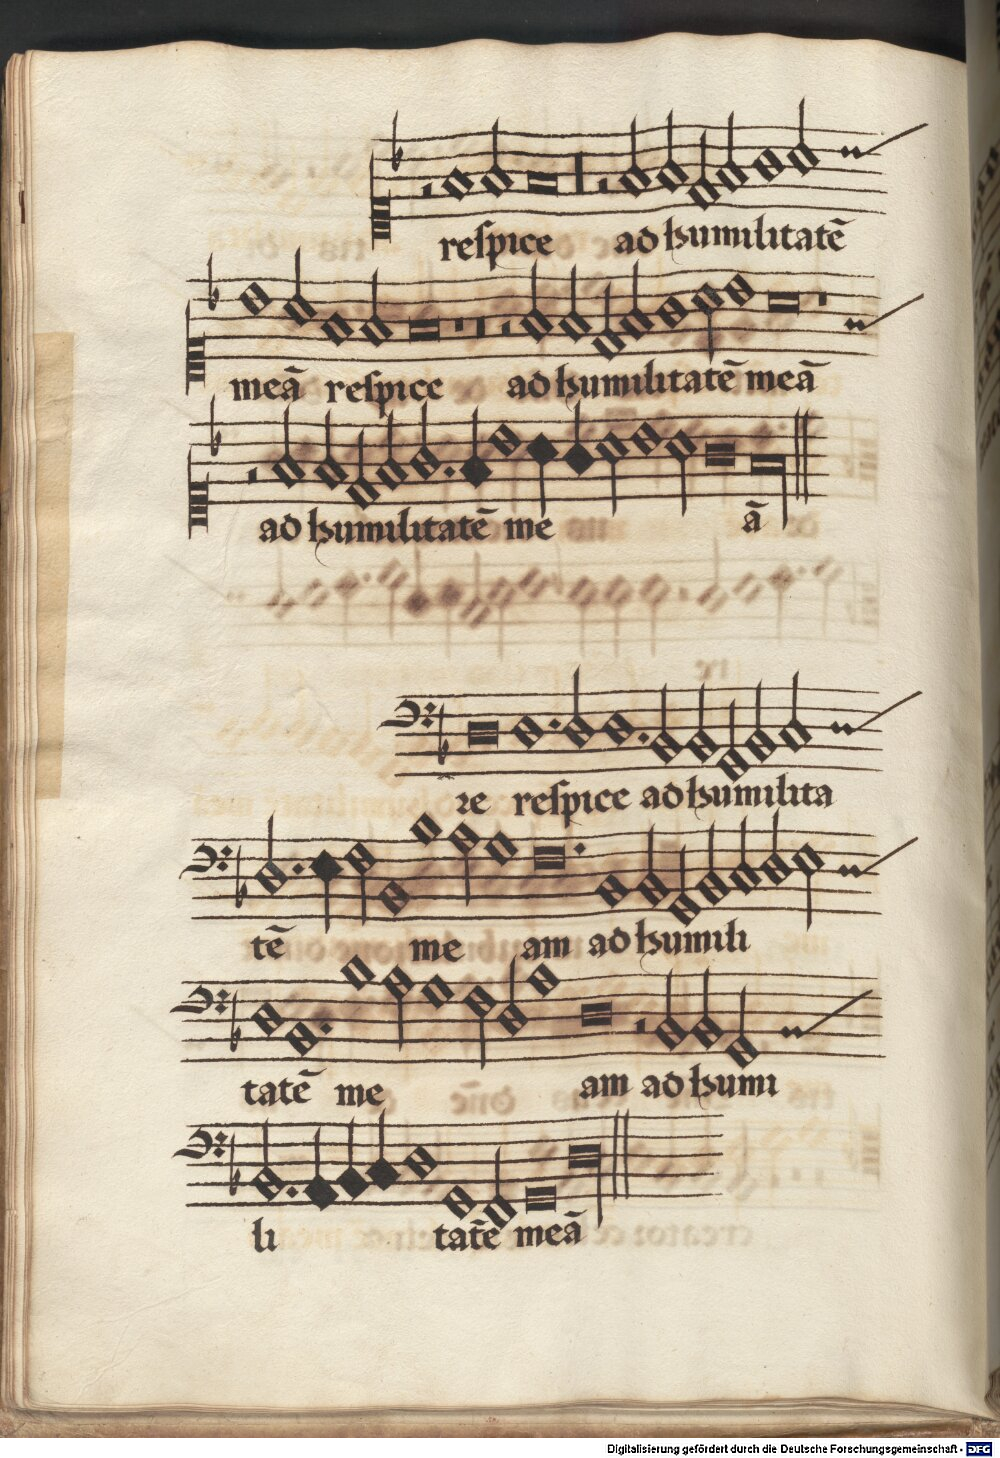 respice ad humilitatē
meā respice ad humilitatē meā
ad humilitatē me ā
re respice ad humilita
tē me am ad humili
tatē me am ad humi
li tatē meā
Digitalisierung gefördert durch die Deutsche Forschungsgemeinschaft - DFG